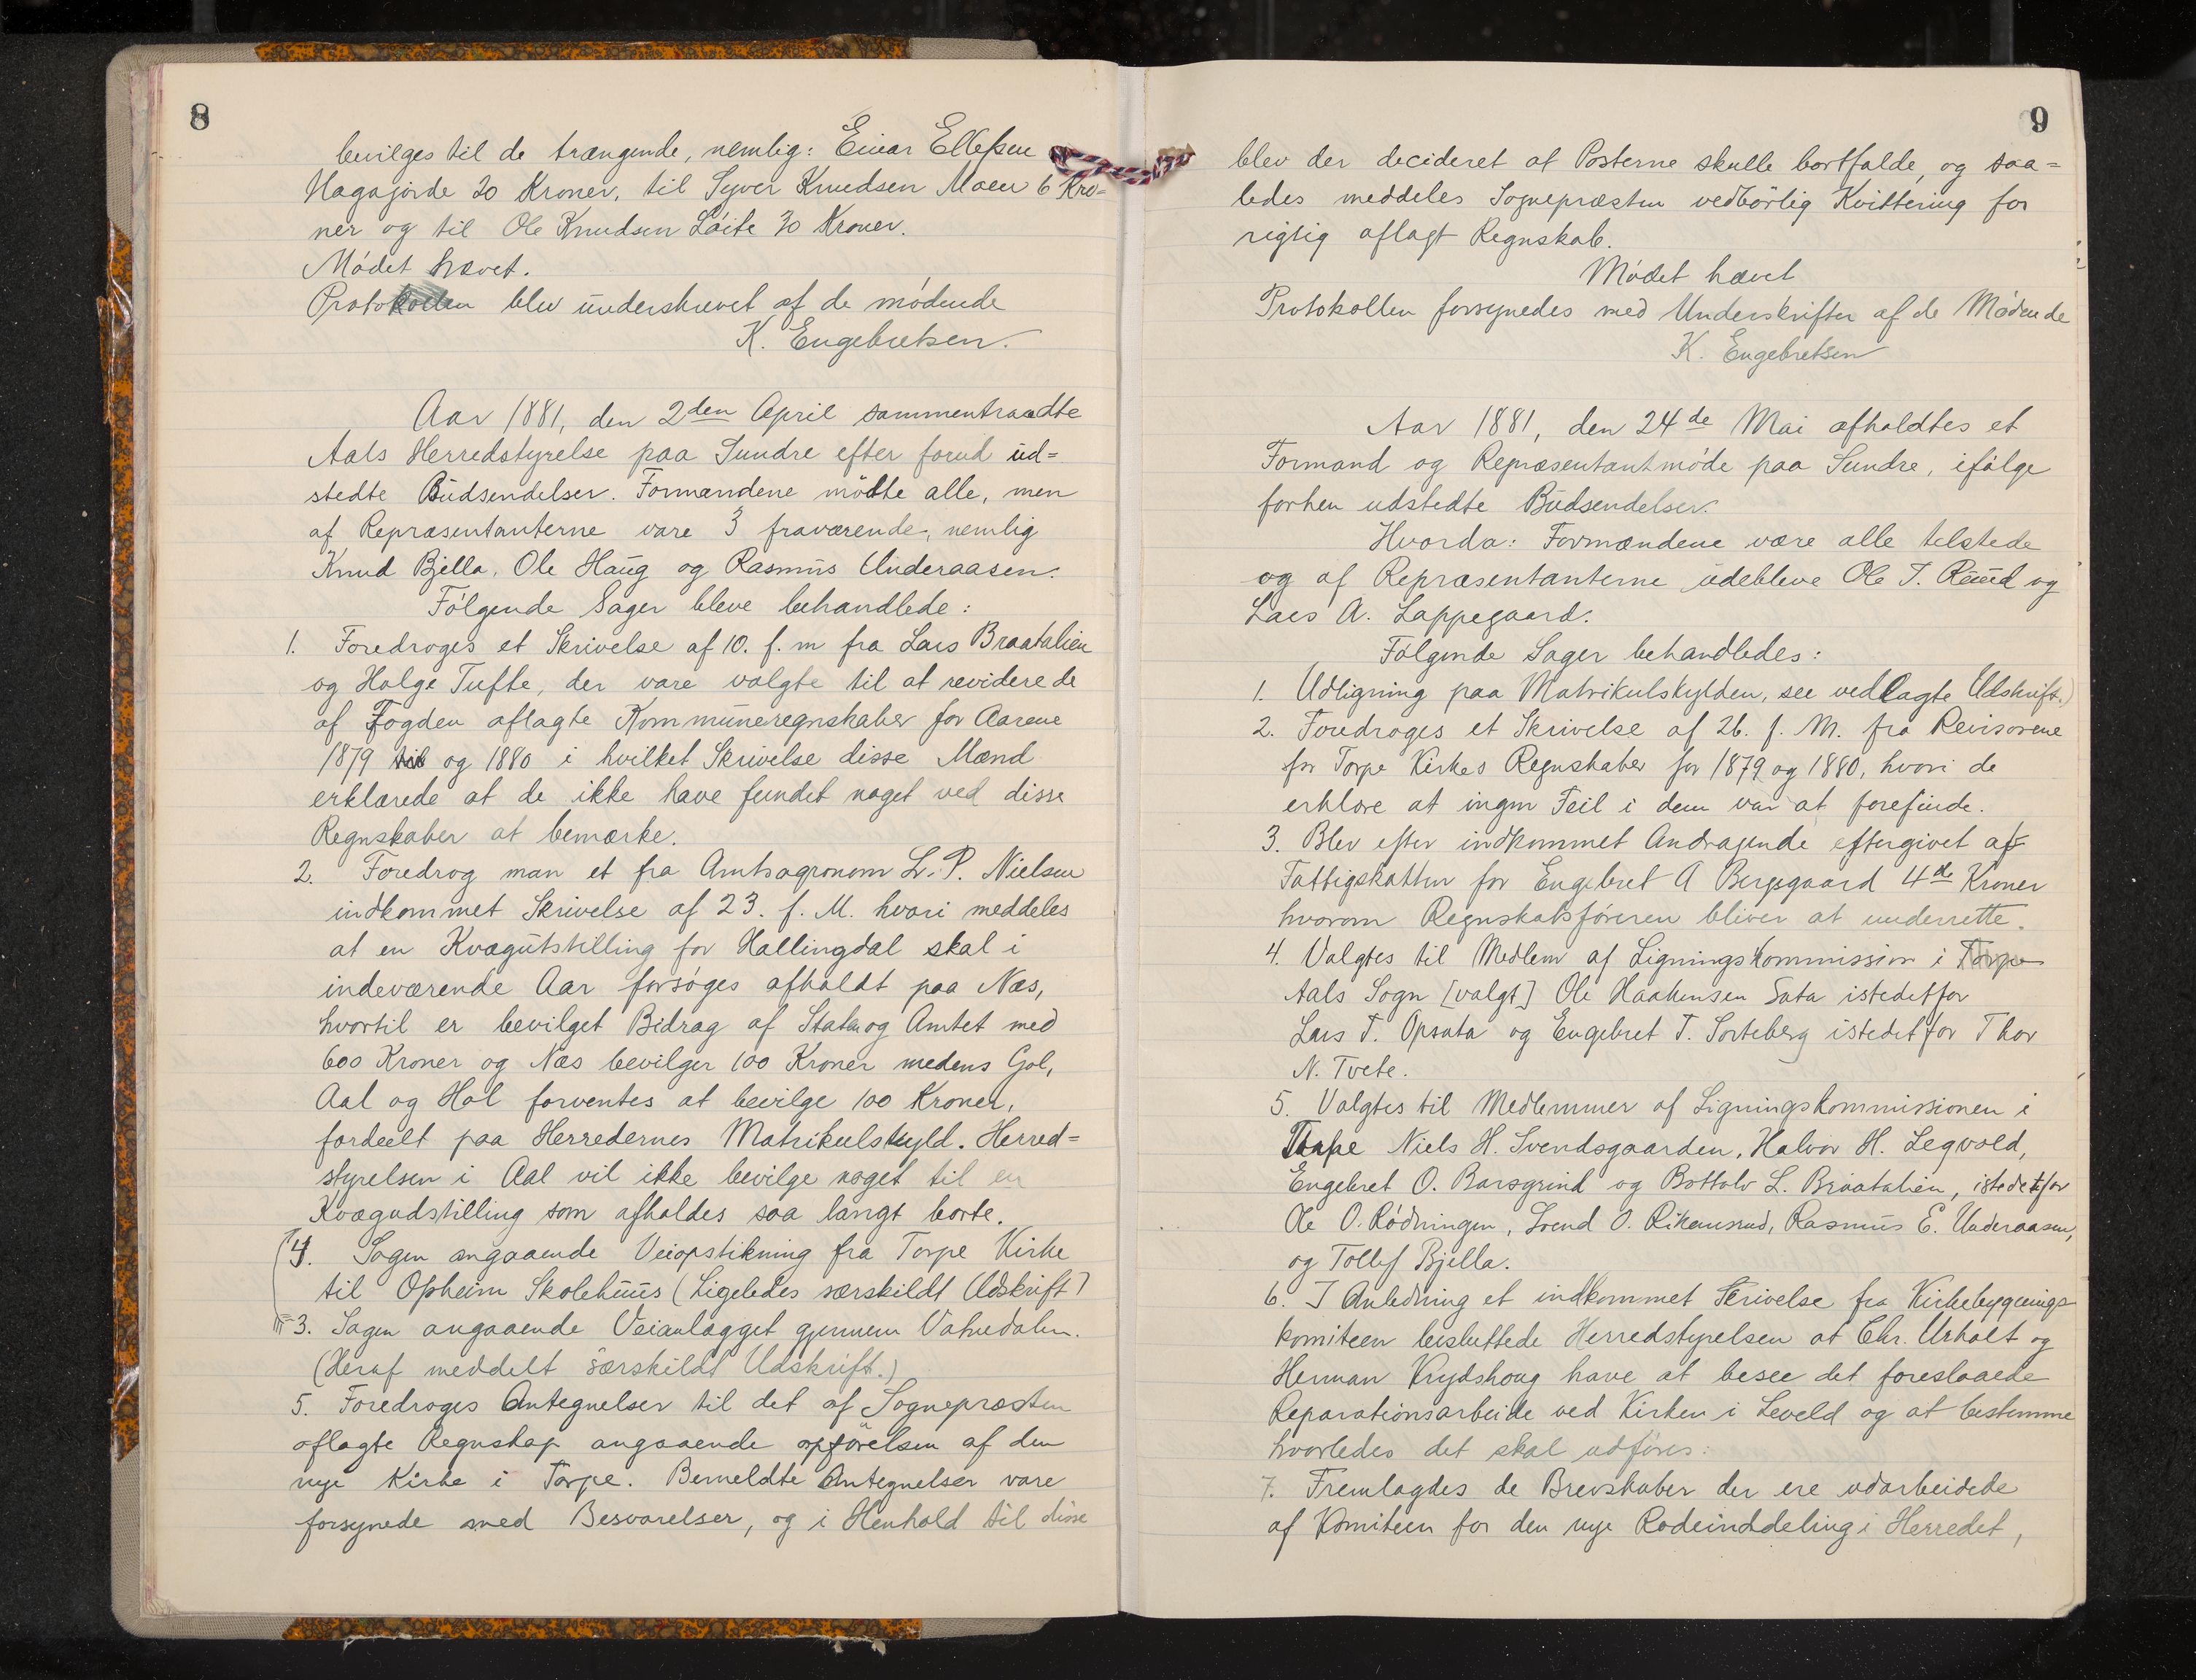 8
bevilges til de trængende, nemlig: Einar Ellefsen
Hagajorde 20 Kroner, til Syver Knudsen Moen 6 Kro=
ner og til Ole Knudsen Löite 30 Kroner.
Mödet hævet.
Protokollen blev underskrevet af de mödende
K. Engebretsen.
Aar 1881, den 2den April sammentraadte
Aals Herredstyrelse paa Sundre efter forud ud=
stedte Budsendelser. Formændene mödte alle, men
af Repræsentanterne vare 3 fraværende, nemlig
Knud Bjella, Ole Haug og Rasmus Underaasen.
Fölgende Sager bleve behandlede:
1. Foredroges et Skrivelse af 10. f. m fra Lars Braatalien
og Holge Tufte, der vare valgte til at revidere de
af Fogden aflagte Kommuneregnskaber for Aarene
1879 til og 1880 i hvilket Skrivelse disse Mænd
erklærede at de ikke have fundet noget ved disse
Regnskaber at bemærke.
2. Foredrog man et fra Amtsagronom L. P. Nielsen
indkommet Skrivelse af 23. f. M. hvori meddeles
at en Kvægutstilling for Hallingdal skal i
indeværende Aar forsöges afholdt paa Næs,
hvortil er bevilget Bidrag af Staten og Amtet med
600 Kroner og Næs bevilger 100 Kroner medens Gol,
Aal og Hol forventes at bevilge 100 Kroner,
fordeelt paa Herredernes Matrikulskyld. Herred=
styrelsen i Aal vil ikke bevilge noget til en
Kvægudstilling som afholdes saa langt borte.
4. Sagen angaaende Veiopstikning fra Torpe Kirke
til Opheim Skolehuus (Ligeledes særskildt Udskrift)
3. Sagen angaaende Veianlægget gjennem Vatnedalen.
(Heraf meddelt særskildt Udskrift.)
5. Foredroges Antegnelser til det af Sognepræsten
aflagte Regnskap angaaende opförelsen af den
nye Kirke i Torpe. Bemeldte Antegnelser vare
forsynede med Besvarelser, og i Henhold til disse
9
blev der decideret at Posterne skulle bortfalde, og saa=
ledes meddeles Sognepræsten vedbörlig Kvittering for
rigtig aflagt Regnskab.
Mödet hævet
Protokollen forsynedes med Underskrifter af de Mödende
K. Engebretsen
Aar 1881, den 24de Mai afholdtes et
Formand og Repræsentantmöde paa Sundre, ifölge
forhen udstedte Budsendelser.
Hvorda: Formændene være alle tilstede
og af Repræsentanterne udebleve Ole T. Ruud og
Lars A. Lappegaard.
Fölgende Sager behandledes:
1. Udligning paa Matrikulskylden, see vedlagte Udskrift.)
2. Foredroges et Skrivelse af 26. f. M. fra Revisorene
for Torpe Kirkes Regnskaber for 1879 og 1880, hvori de
erklære at ingen Feil i dem var at forefinde.
3. Blev efter indkommet Andragende eftergivet af
Fattigskatten for Engebret A Bergegaard 4de Kroner
hvorom Regnskabsföreren bliver at underrette.
4. Valgtes til Medlem af Ligningskommission i Torpe
Aals Sogn [valgt] Ole Haakensen Sata istedetfor
Lars T. Opsata og Engebret T. Sorteberg istedetfor Thor
N. Tvete.
5. Valgtes til Medlemmer af Ligningskommissionen i
Torpe Niels H. Svendsgaarden, Halvor H. Legvold,
Engebret O. Barsgrind og Bottolv L. Braatalien, istedetfor
Ole O. Rödningen, Svend O. Rikansrud, Rasmus E. Underaasen,
og Tollef Bjella.
6. I Anledning et indkommet Skrivelse fra Kirkebygnings
komiteen besluttede Herredstyrelsen at Chr. Urholt og
Herman Krydshoug have at besee det foreslaaede
Reparationsarbeide ved Kirken i Leveld og at bestemme
hvorledes det skal udföres:
7. Fremlagdes de Brevskaber der ere udarbeidede
af Komiteen for den nye Rodeinddeling i Herredet,